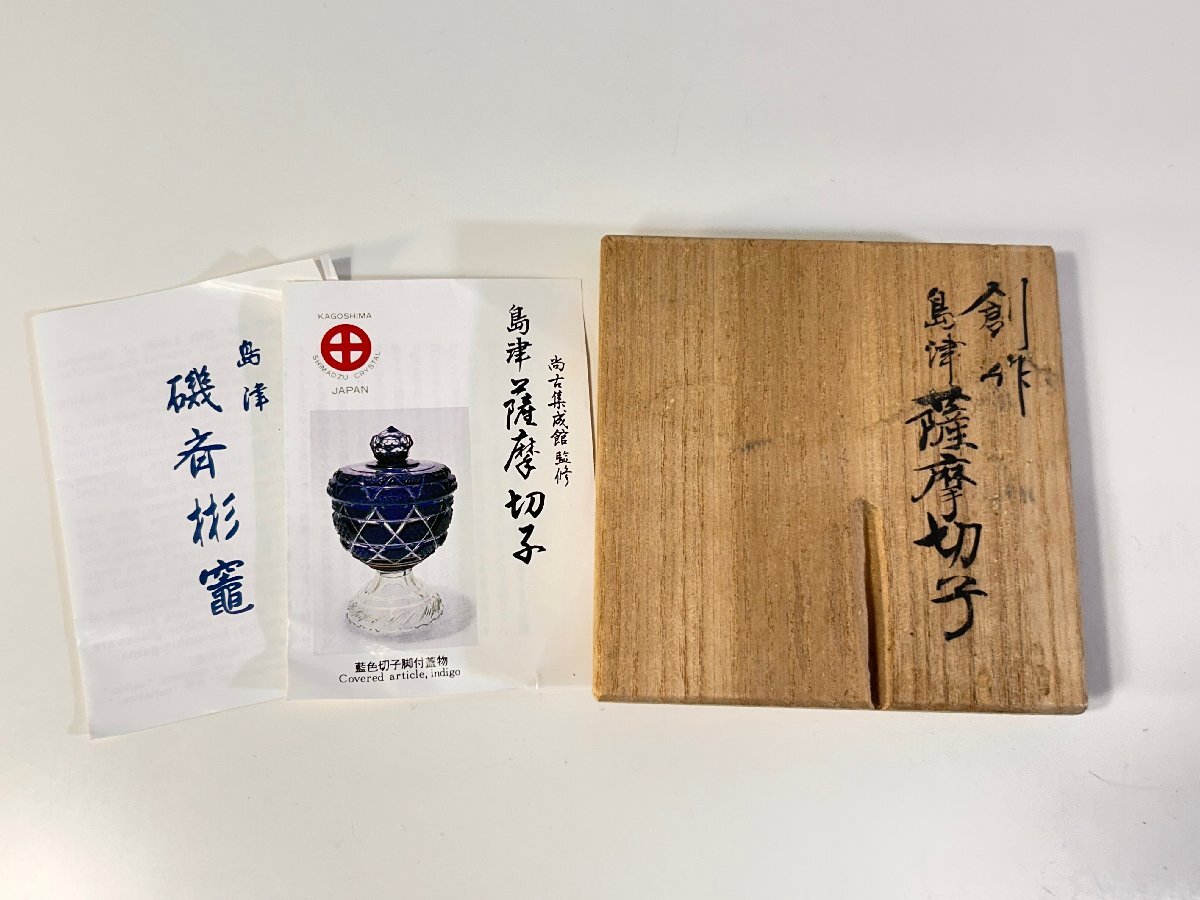 島津
磯斉彬竈
KAGOSHIMA
SHIMADZU CRYSTAL
JAPAN
尚古集成館監修
島津薩摩切子
藍色切子脚付蓋物
Covered article, indigo
創作
島津薩摩切子